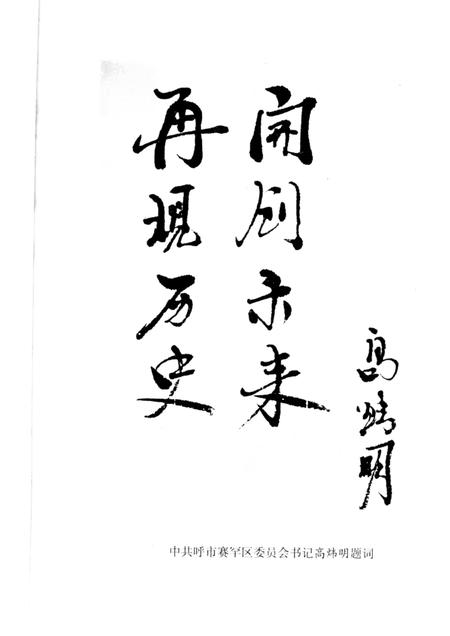 再现历史
开创未来
高炜明
中共呼市赛罕区委员会书记高炜明题词